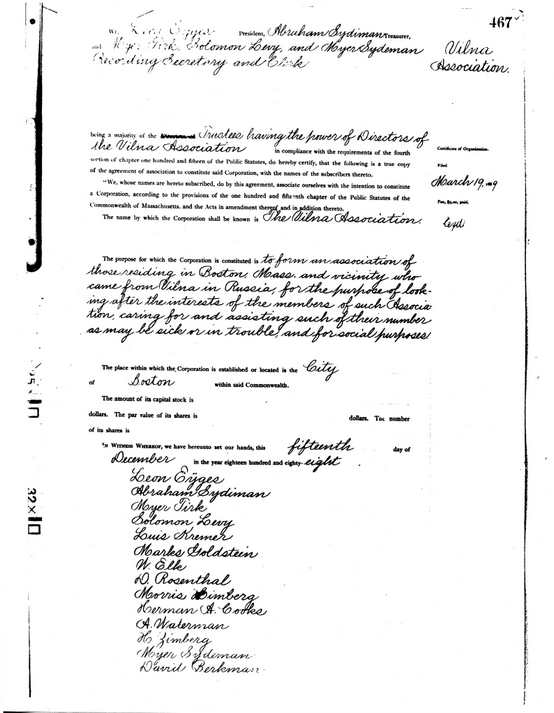 467
We, Leon Eyges President, Abraham Sydiman Treasurer,
and Myer Tirk, Solomon Levy, and Myer Sydeman
Recording Secretary and Clerk
Vilna
Association.
being a majority of the Trustees having the power of Directors of
the Vilna Association in compliance with the requirements of the fourth
section of chapter one hundred and fifteen of the Public Statutes, do hereby certify, that the following is a true copy
of the agreement of association to constitute said Corporation, with the names of the subscribers thereto.
"We, whose names are hereto subscribed, do by this agreement, associate ourselves with the intention to constitute
a Corporation, according to the provisions of the one hundred and fifteenth chapter of the Public Statutes of the
Commonwealth of Massachusetts, and the Acts in amendment thereof and in addition thereto.
The name by which the Corporation shall be known is The Vilna Association.
Certificate of Organization.
Filed
March 19,
Fee, $5.00, paid.
The purpose for which the Corporation is constituted is to form an association of
those residing in Boston, Mass. and vicinity who
came from Vilna in Russia, for the purpose of look-
ing after the interests of the members of such Associa
tion, caring for and assisting such of their number
as may be sick or in trouble, and for social purposes
The place within which the Corporation is established or located is the City
of Boston within said Commonwealth.
The amount of its capital stock is
dollars. The par value of its shares is dollars. The number
of its shares is
IN WITNESS WHEREOF, we have hereunto set our hands, this fifteenth day of
December in the year eighteen hundred and eighty-eight
Leon Eyges
Abraham Sydiman
Myer Tirk
Solomon Levy
Luis Kremer
Marks Goldstein
W. Elk
D. Rosenthal
Morris Simberg
Herman A. Cooks
A. Waterman
H. Zimberg
Myer Sydiman
David Berkman
32x